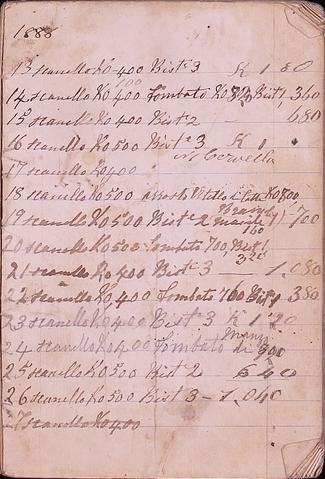 1888
13 scanello Ko 400 Bist.e 3 K 1 80
14 scanello Ko 400 Lombato Ko Bist 1, 360
15 scanello Ko 400 Bist.e 2 — 680
16 scanello Ko 500 Bist.e 3 K 1
N. 1 Cervella
17 scanello Ko 400
18 scanello Ko 500 arrosto Vitello di Ko 800
19 scanello Ko 500 Bist.e 2 700
160
20 scanello Ko 500 Lombato 700 Bist 1
320
21 scanello Ko 400 Bist.e 3 — 1,080
22 scanello Ko 400 Lombato 760 Bist 1 380
23 scanello Ko 400 Bist.e 3 K 1 20
Manzo
24 scanello Ko 400 Lombato di 900
25 scanello Ko 500 Bist 2 640
26 scanello Ko 500 Bist 3 — 1,040
27 scanello Ko 400